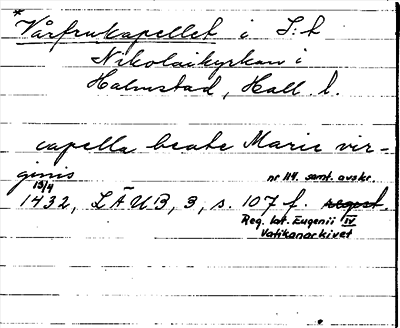 * Vårfrukapellet i S:t
Nikolaikyrkan i
Halmstad, Hall. l.
capella beate Marie vir-
ginis
nr 114. samt. avskr.
13/4
1432, LÄUB, 3, s. 107 f. regest.
Reg. lat. Eugenii IV
Vatikanarkivet